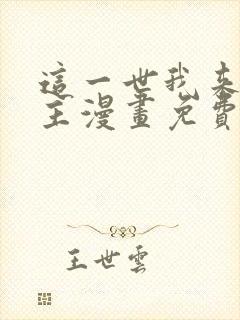 這一世我來
主漫畫免費
王世雲